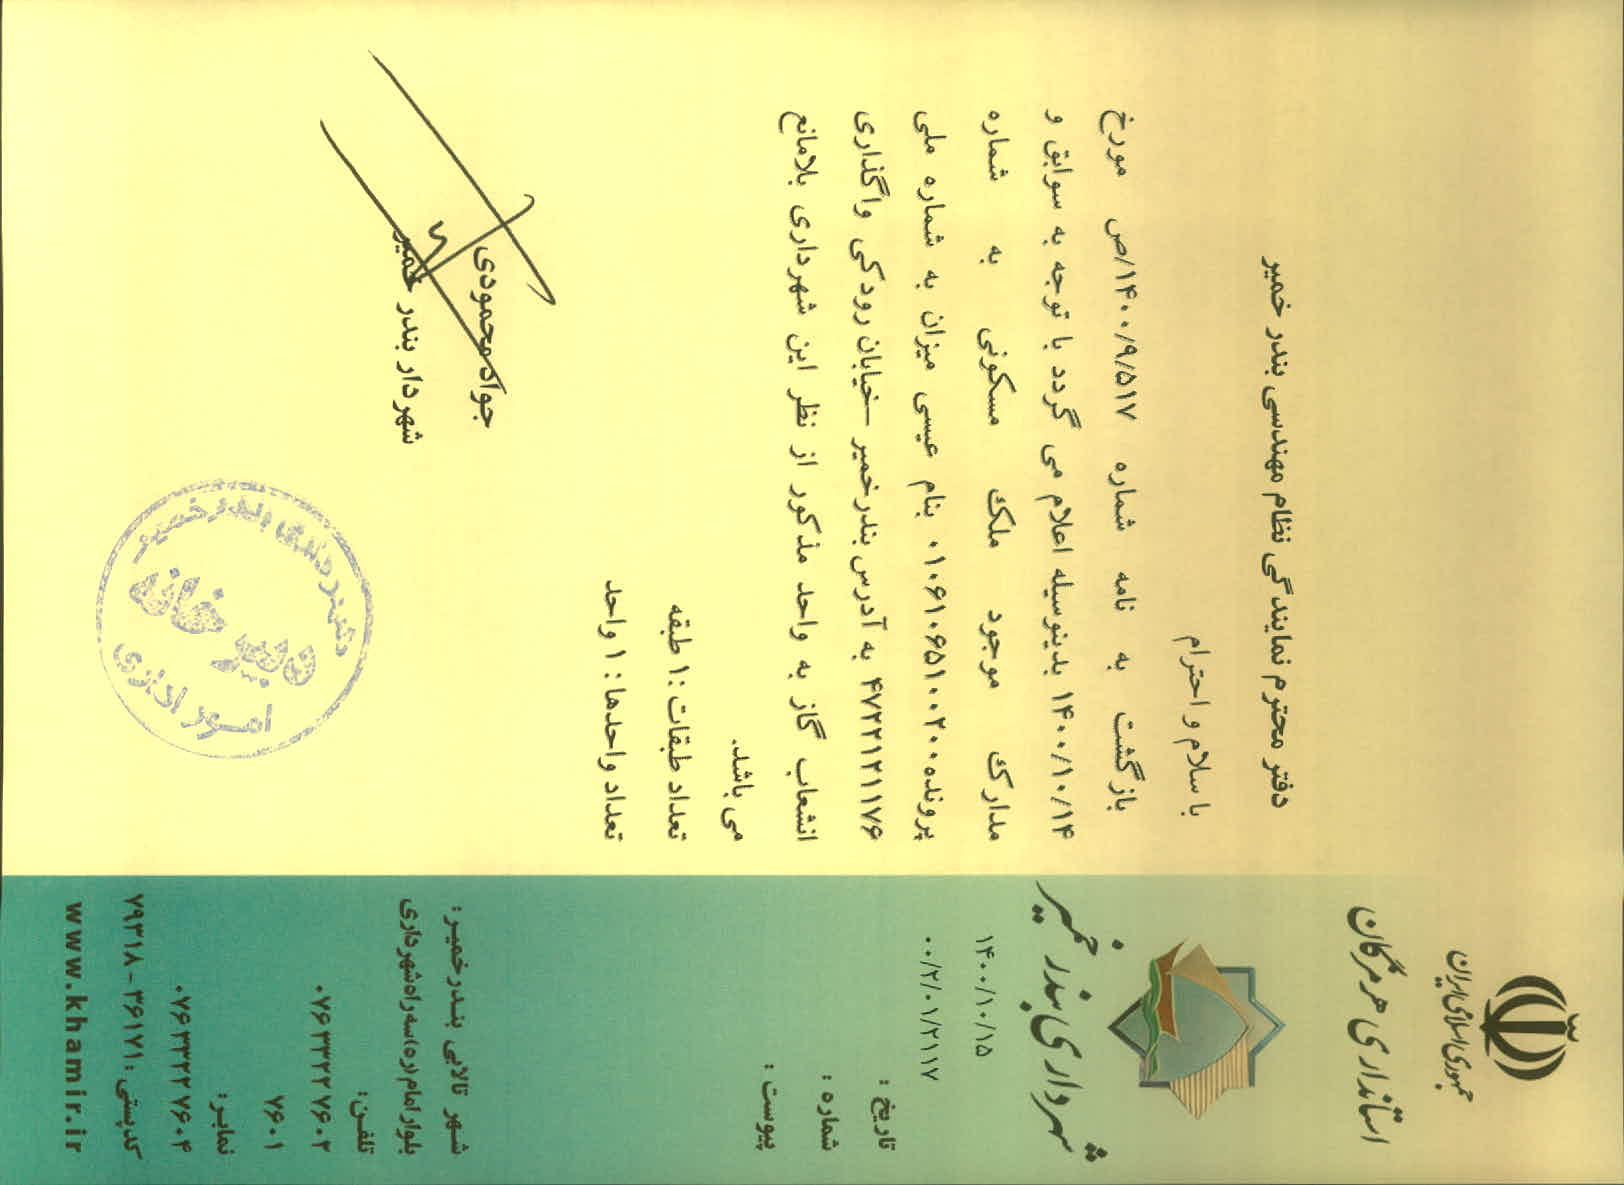 جمهوری اسلامی ایران
استانداری هرمزگان
شهرداری بندر خمیر
۱۴۰۰/۱۰/۱۵
۰۰/۲/۰۱/۲۱۱۷
تاریخ :
شماره :
پیوست :
دفتر محترم نمایندگی نظام مهندسی بندر خمیر
با سلام و احترام
بازگشت به نامه شماره ۱۴۰۰/۹/۵۱۷/ص مورخ
۱۴۰۰/۱۰/۱۴ بدینوسیله اعلام می گردد با توجه به سوابق و
مدارک موجود ملک مسکونی به شماره
پرونده ۰۱۰۶۱۰۶۵۱۰۰۲۰۰ بنام عیسی میزان به شماره ملی
۴۷۲۲۱۲۱۱۷۶ به آدرس بندرخمیر -خیابان رودکی واگذاری
انشعاب گاز به واحد مذکور از نظر این شهرداری بلامانع
می باشد.
تعداد طبقات :۱ طبقه
تعداد واحدها : ۱ واحد
جواد محمودی
شهردار بندر خمیر
شهرداری بندر خمیر
دبیرخانه
امور اداری
شهر تالابی بندرخمیر :
بلوار امام (ره) سه راه شهرداری
تلفن:
۰۷۶۳۳۲۲۷۶۰۲
۷۶۰۱
نمابر:
۰۷۶۳۳۲۲۷۶۰۴
کدپستی : ۳۶۱۷۱ - ۷۹۳۱۸
www.khamir.ir